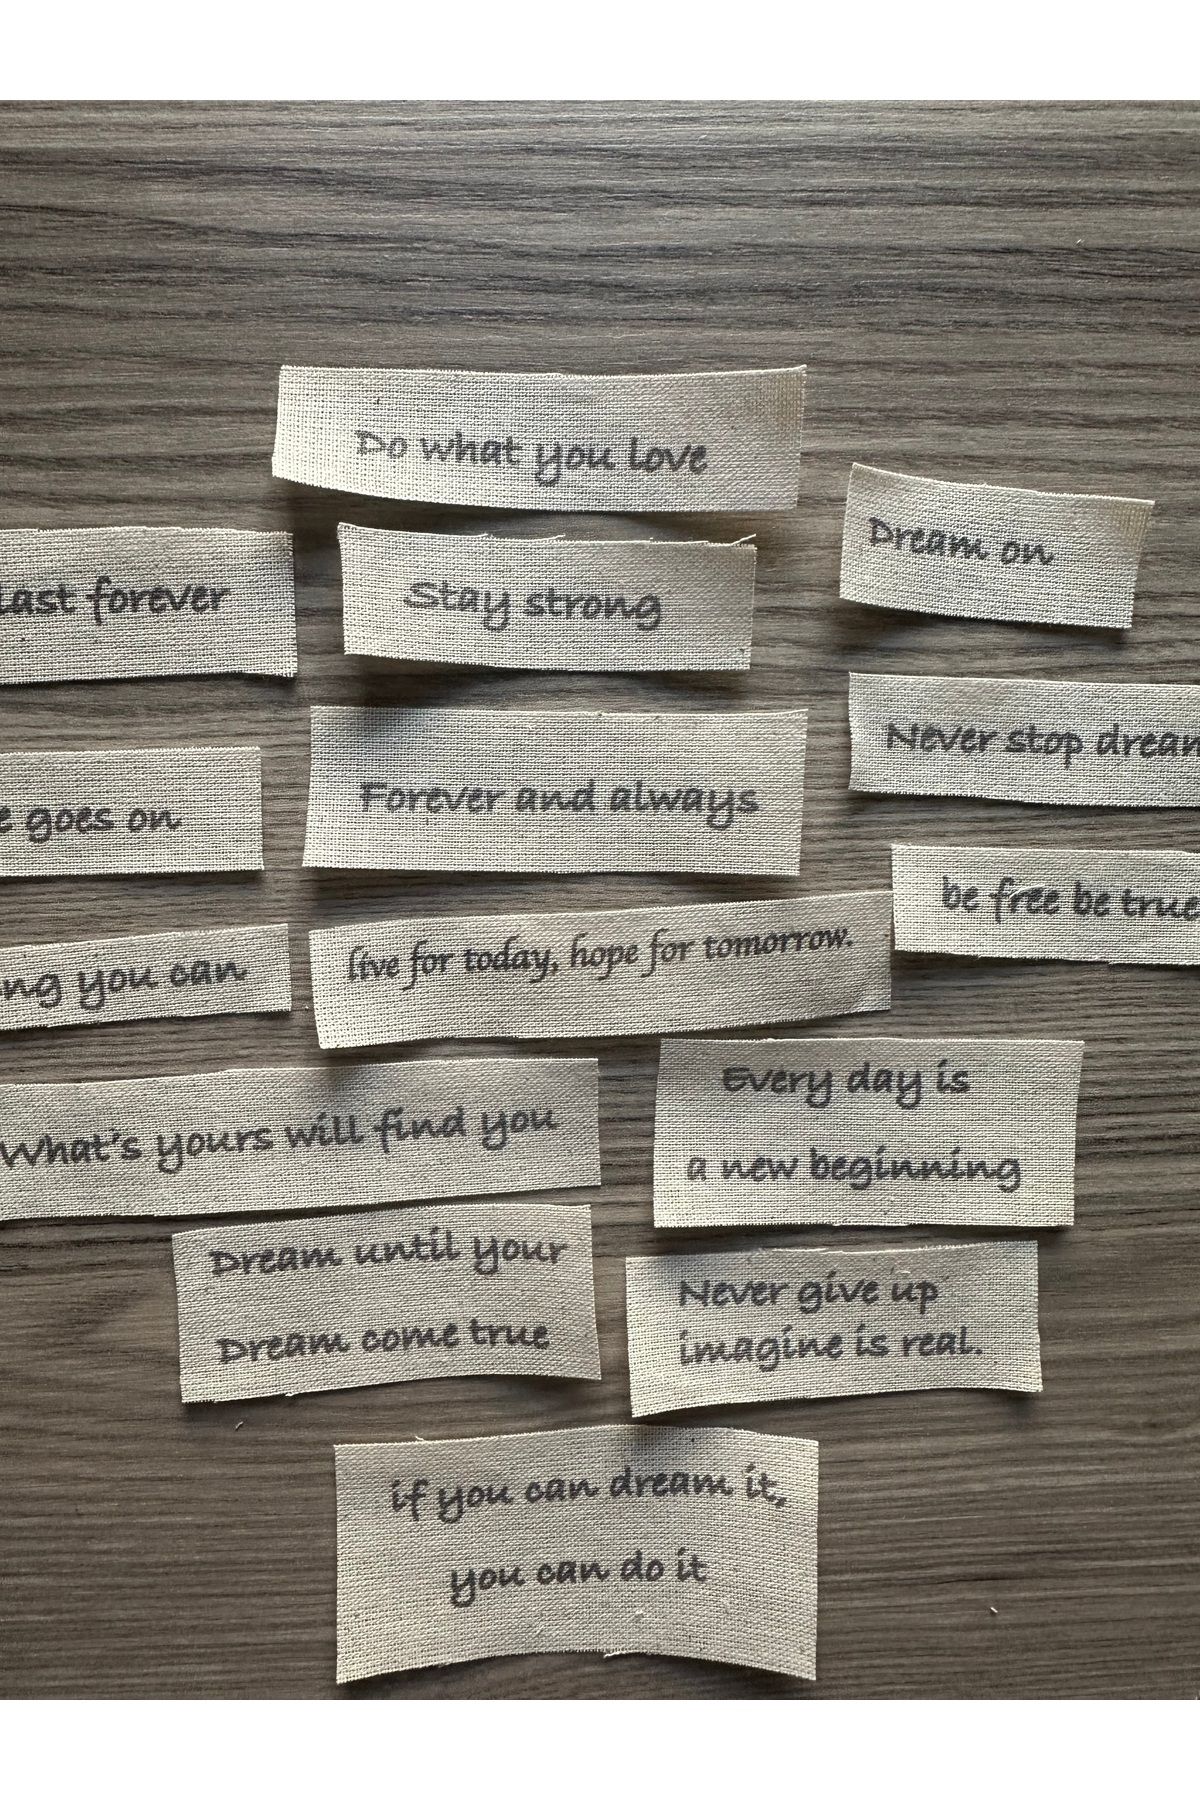 Do what you love
Dream on
Last forever
Stay strong
Never stop
goes on
Forever and always
be free be true
you can
live for today, hope for tomorrow.
What's yours will find you
Every day is
a new beginning
Dream until your
Dream come true
Never give up
imagine is real.
if you can dream it,
you can do it